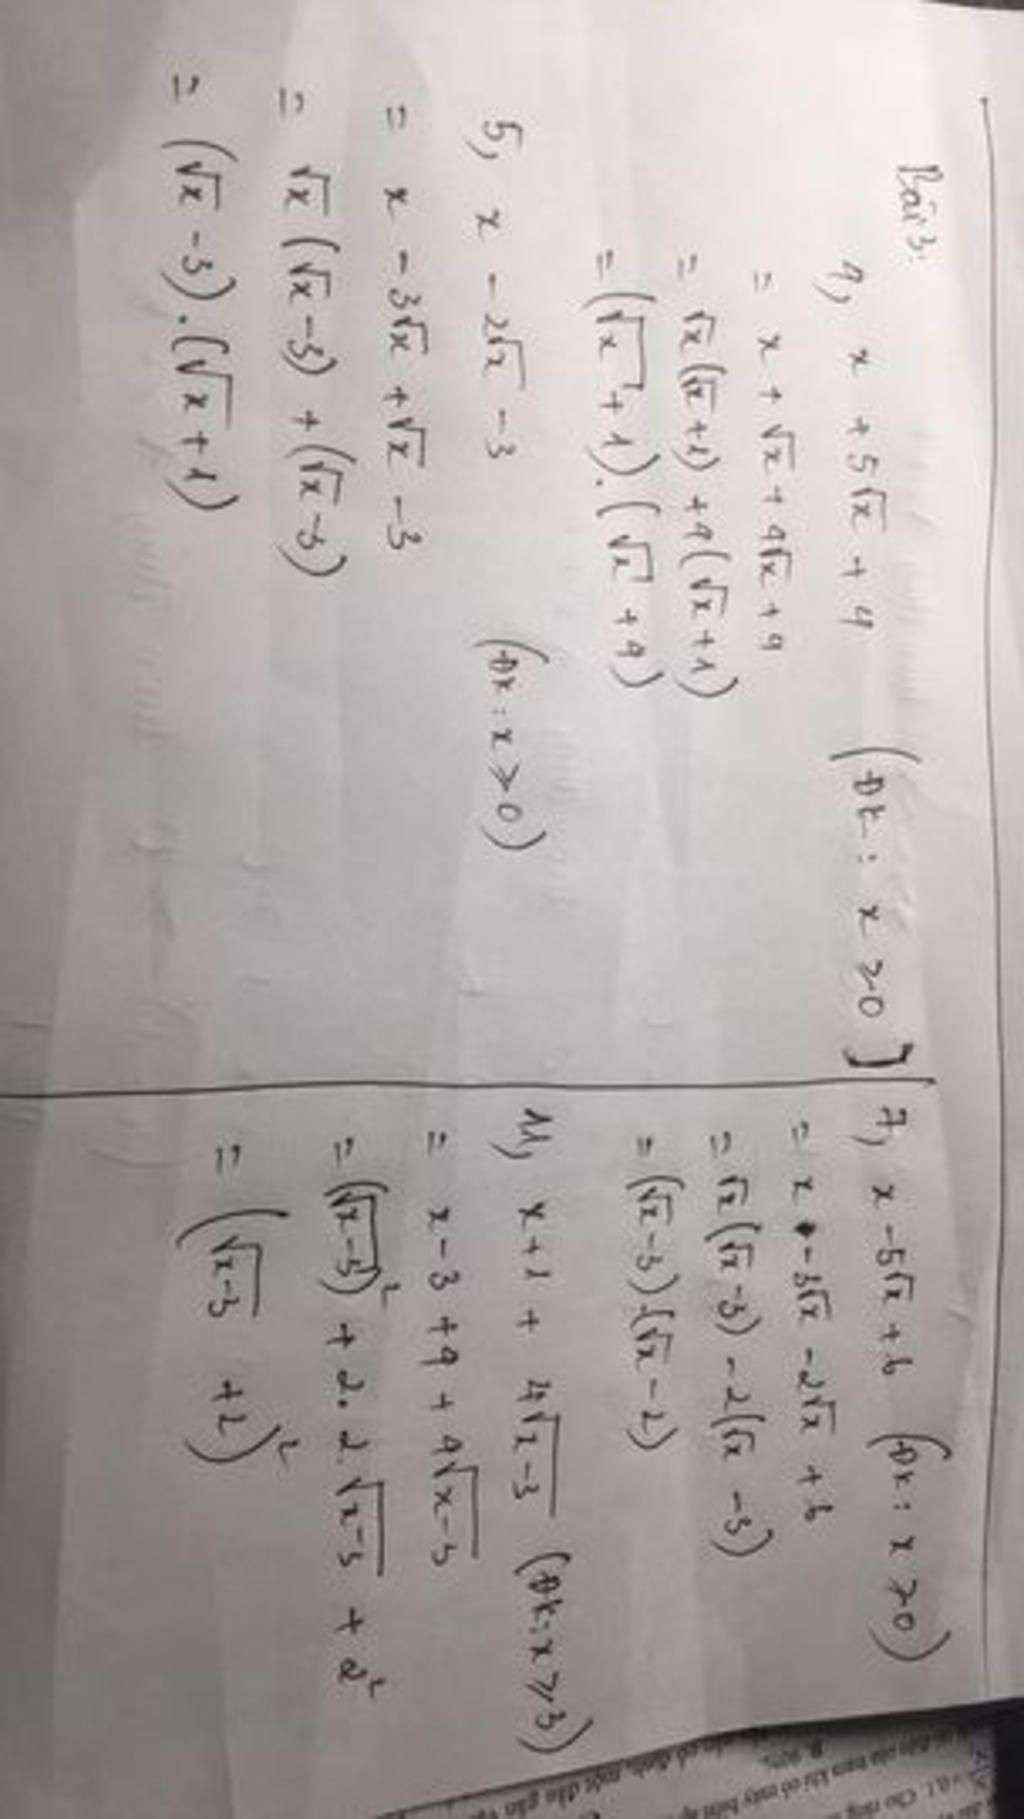 Bài 3.
4, x + 5√x + 4 (ĐK: x ≥ 0)
= x + √x + 4√x + 4
= √x(√x + 1) + 4(√x + 1)
= (√x + 1).(√x + 4)
5, x - 2√x - 3 (ĐK: x ≥ 0)
= x - 3√x + √x - 3
= √x(√x - 3) + (√x - 3)
= (√x - 3).(√x + 1)
7, x - 5√x + 6 (ĐK: x ≥ 0)
= x - 3√x - 2√x + 6
= √x(√x - 3) - 2(√x - 3)
= (√x - 3).(√x - 2)
11, x + 1 + 4√(x - 3) (ĐK: x ≥ 3)
= x - 3 + 4 + 4√(x - 3)
= (√(x - 3))² + 2.2.√(x - 3) + 2²
= (√(x - 3) + 2)²